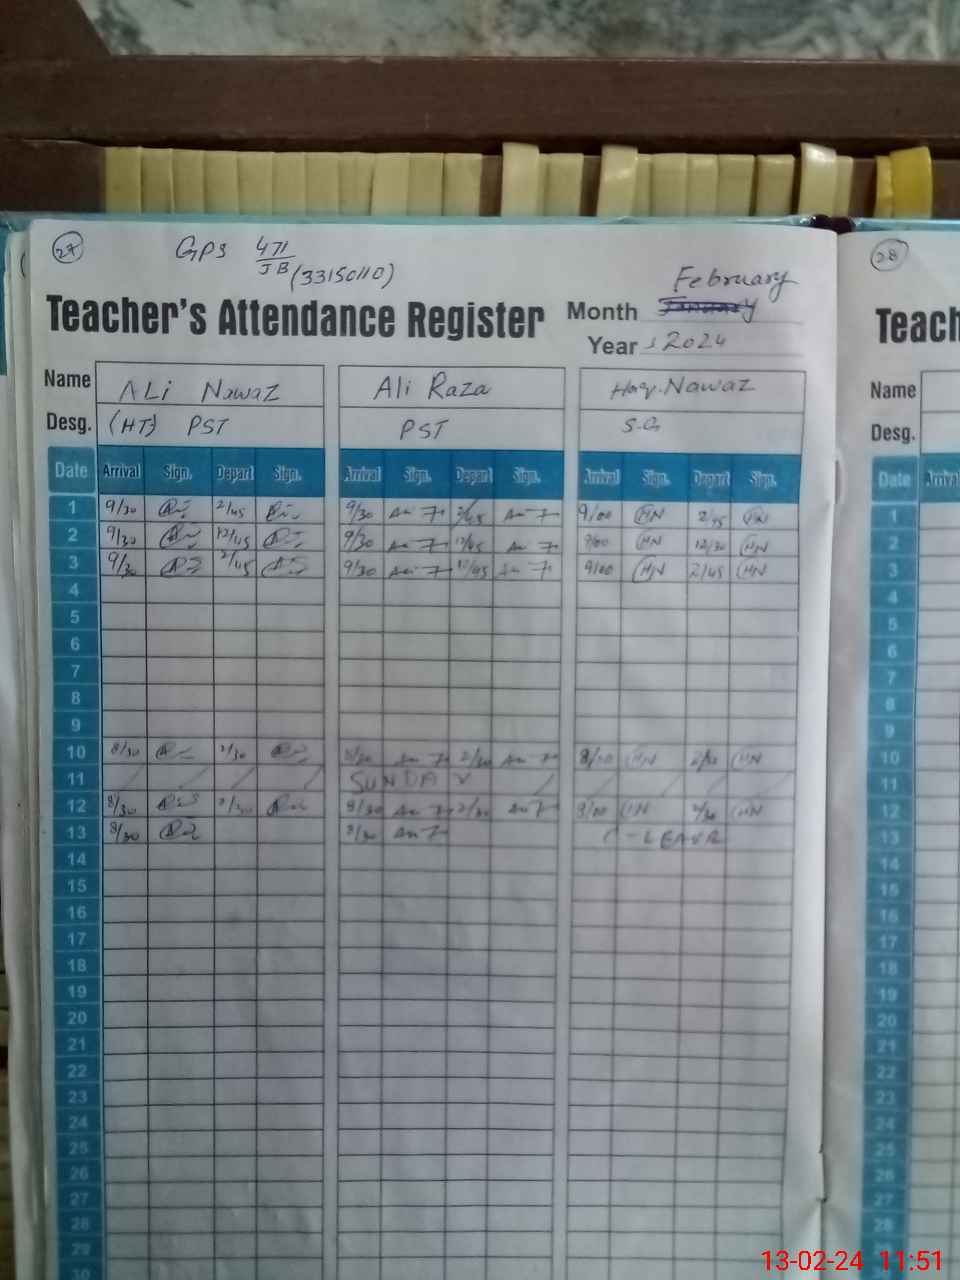 27 GPS 471/JB (33150110) 28
February
Teacher's Attendance Register Month January Teach
Year 2024
Name ALi Nawaz Ali Raza Haq. Nawaz Name
Desg. (HT) PST PST S.G Desg.
Date Arrival Sign. Depart Sign. Arrival Sign. Depart Sign. Arrival Sign. Depart Sign. Date Arrival
1 9/30 2/45 9/30 2/45 9/00 HN 2/45 HN 1
2 9/30 12/45 9/30 12/45 9/00 HN 12/30 HN 2
3 9/30 2/45 9/30 12/45 9/00 HN 2/45 HN 3
4 4
5 5
6 6
7 7
8 8
9 9
10 8/30 2/30 2/30 HN HN 10
11 SUNDAY 11
12 8/30 2/30 8/30 2/30 HN 2/30 HN 12
13 8/30 8/30 C-LEAVE 13
14 14
15 15
16 16
17 17
18 18
19 19
20 20
21 21
22 22
23 23
24 24
25 25
26 26
27 27
28 28
29 29
30
13-02-24 11:51